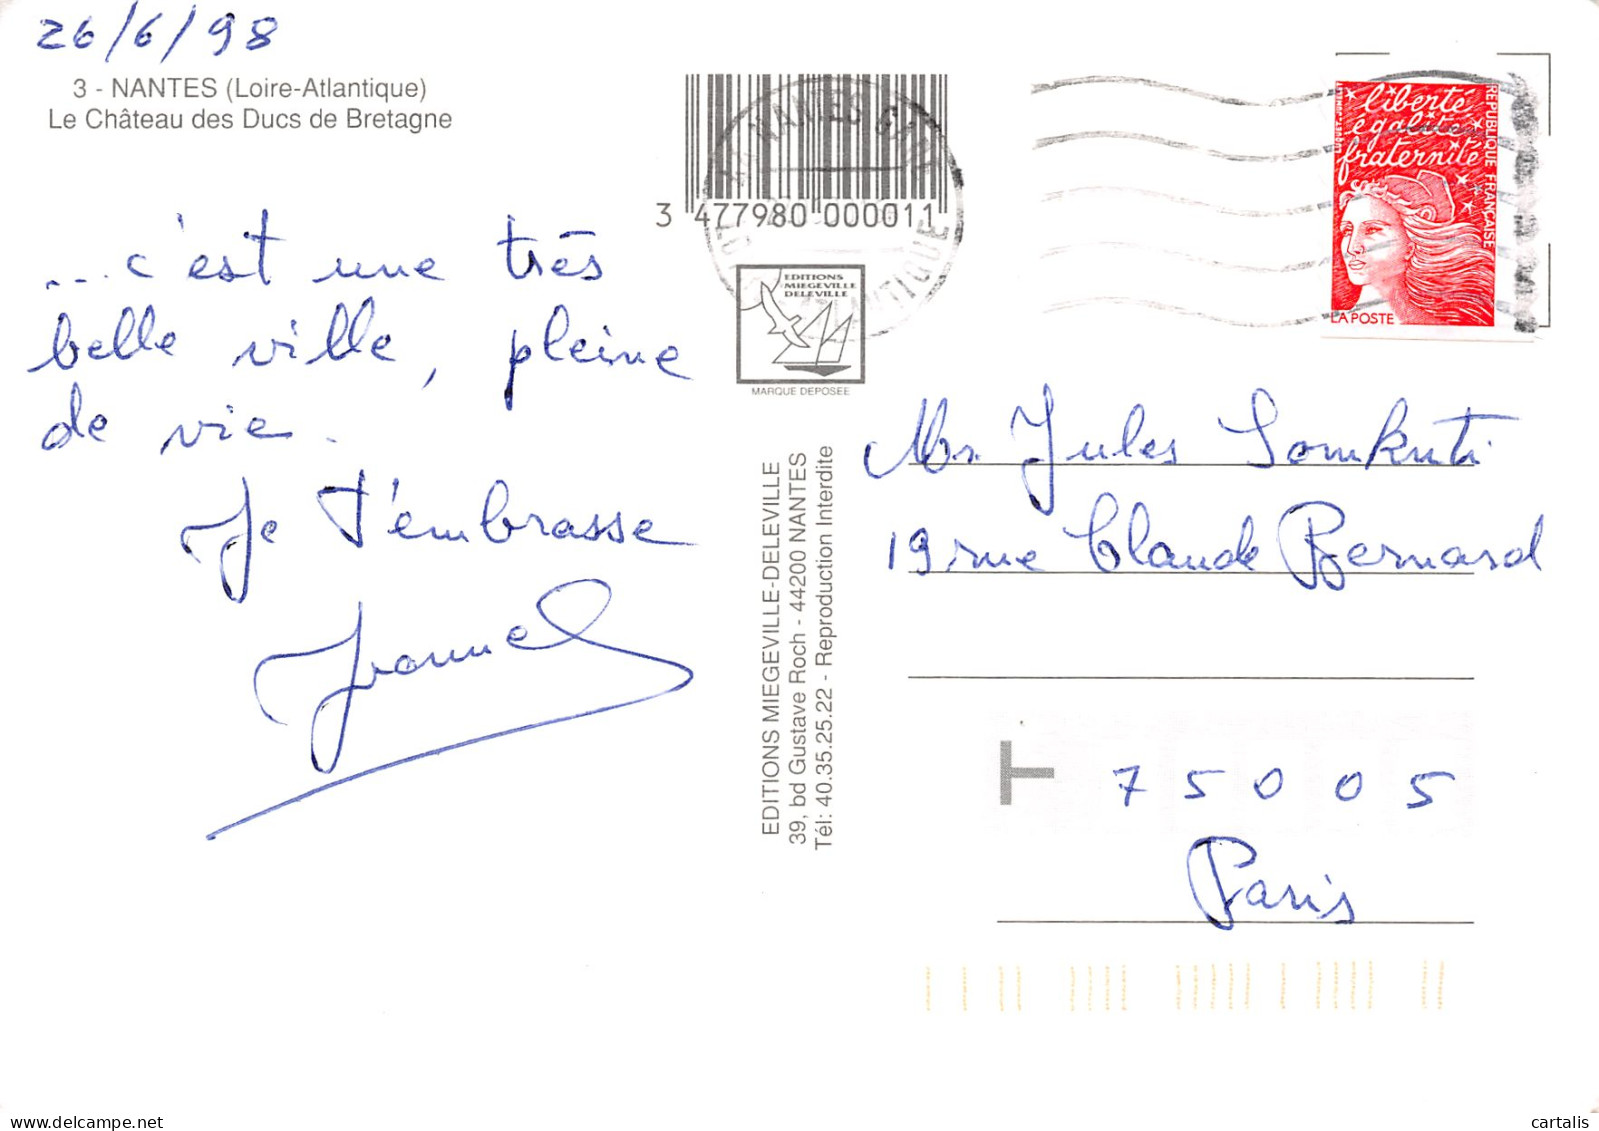 26/6/98
3 - NANTES (Loire-Atlantique)
Le Château des Ducs de Bretagne
... c'est une très
belle ville, pleine
de vie.
Je t'embrasse
3 477980 000011
EDITIONS
MIEGEVILLE
DELEVILLE
MARQUE DEPOSEE
EDITIONS MIEGEVILLE-DELEVILLE
39, bd Gustave Roch - 44200 NANTES
Tél: 40.35.25.22 - Reproduction Interdite
NANTES
liberté
égalité
fraternité
REPUBLIQUE FRANÇAISE
LA POSTE
Mr. Jules Somkuti
19 rue Claude Bernard
T 75005
Paris
cartalis